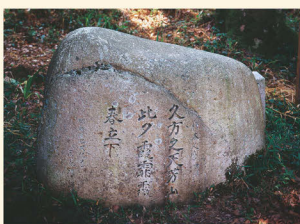 久方之天芳山
此夕霞霏霺
春立下